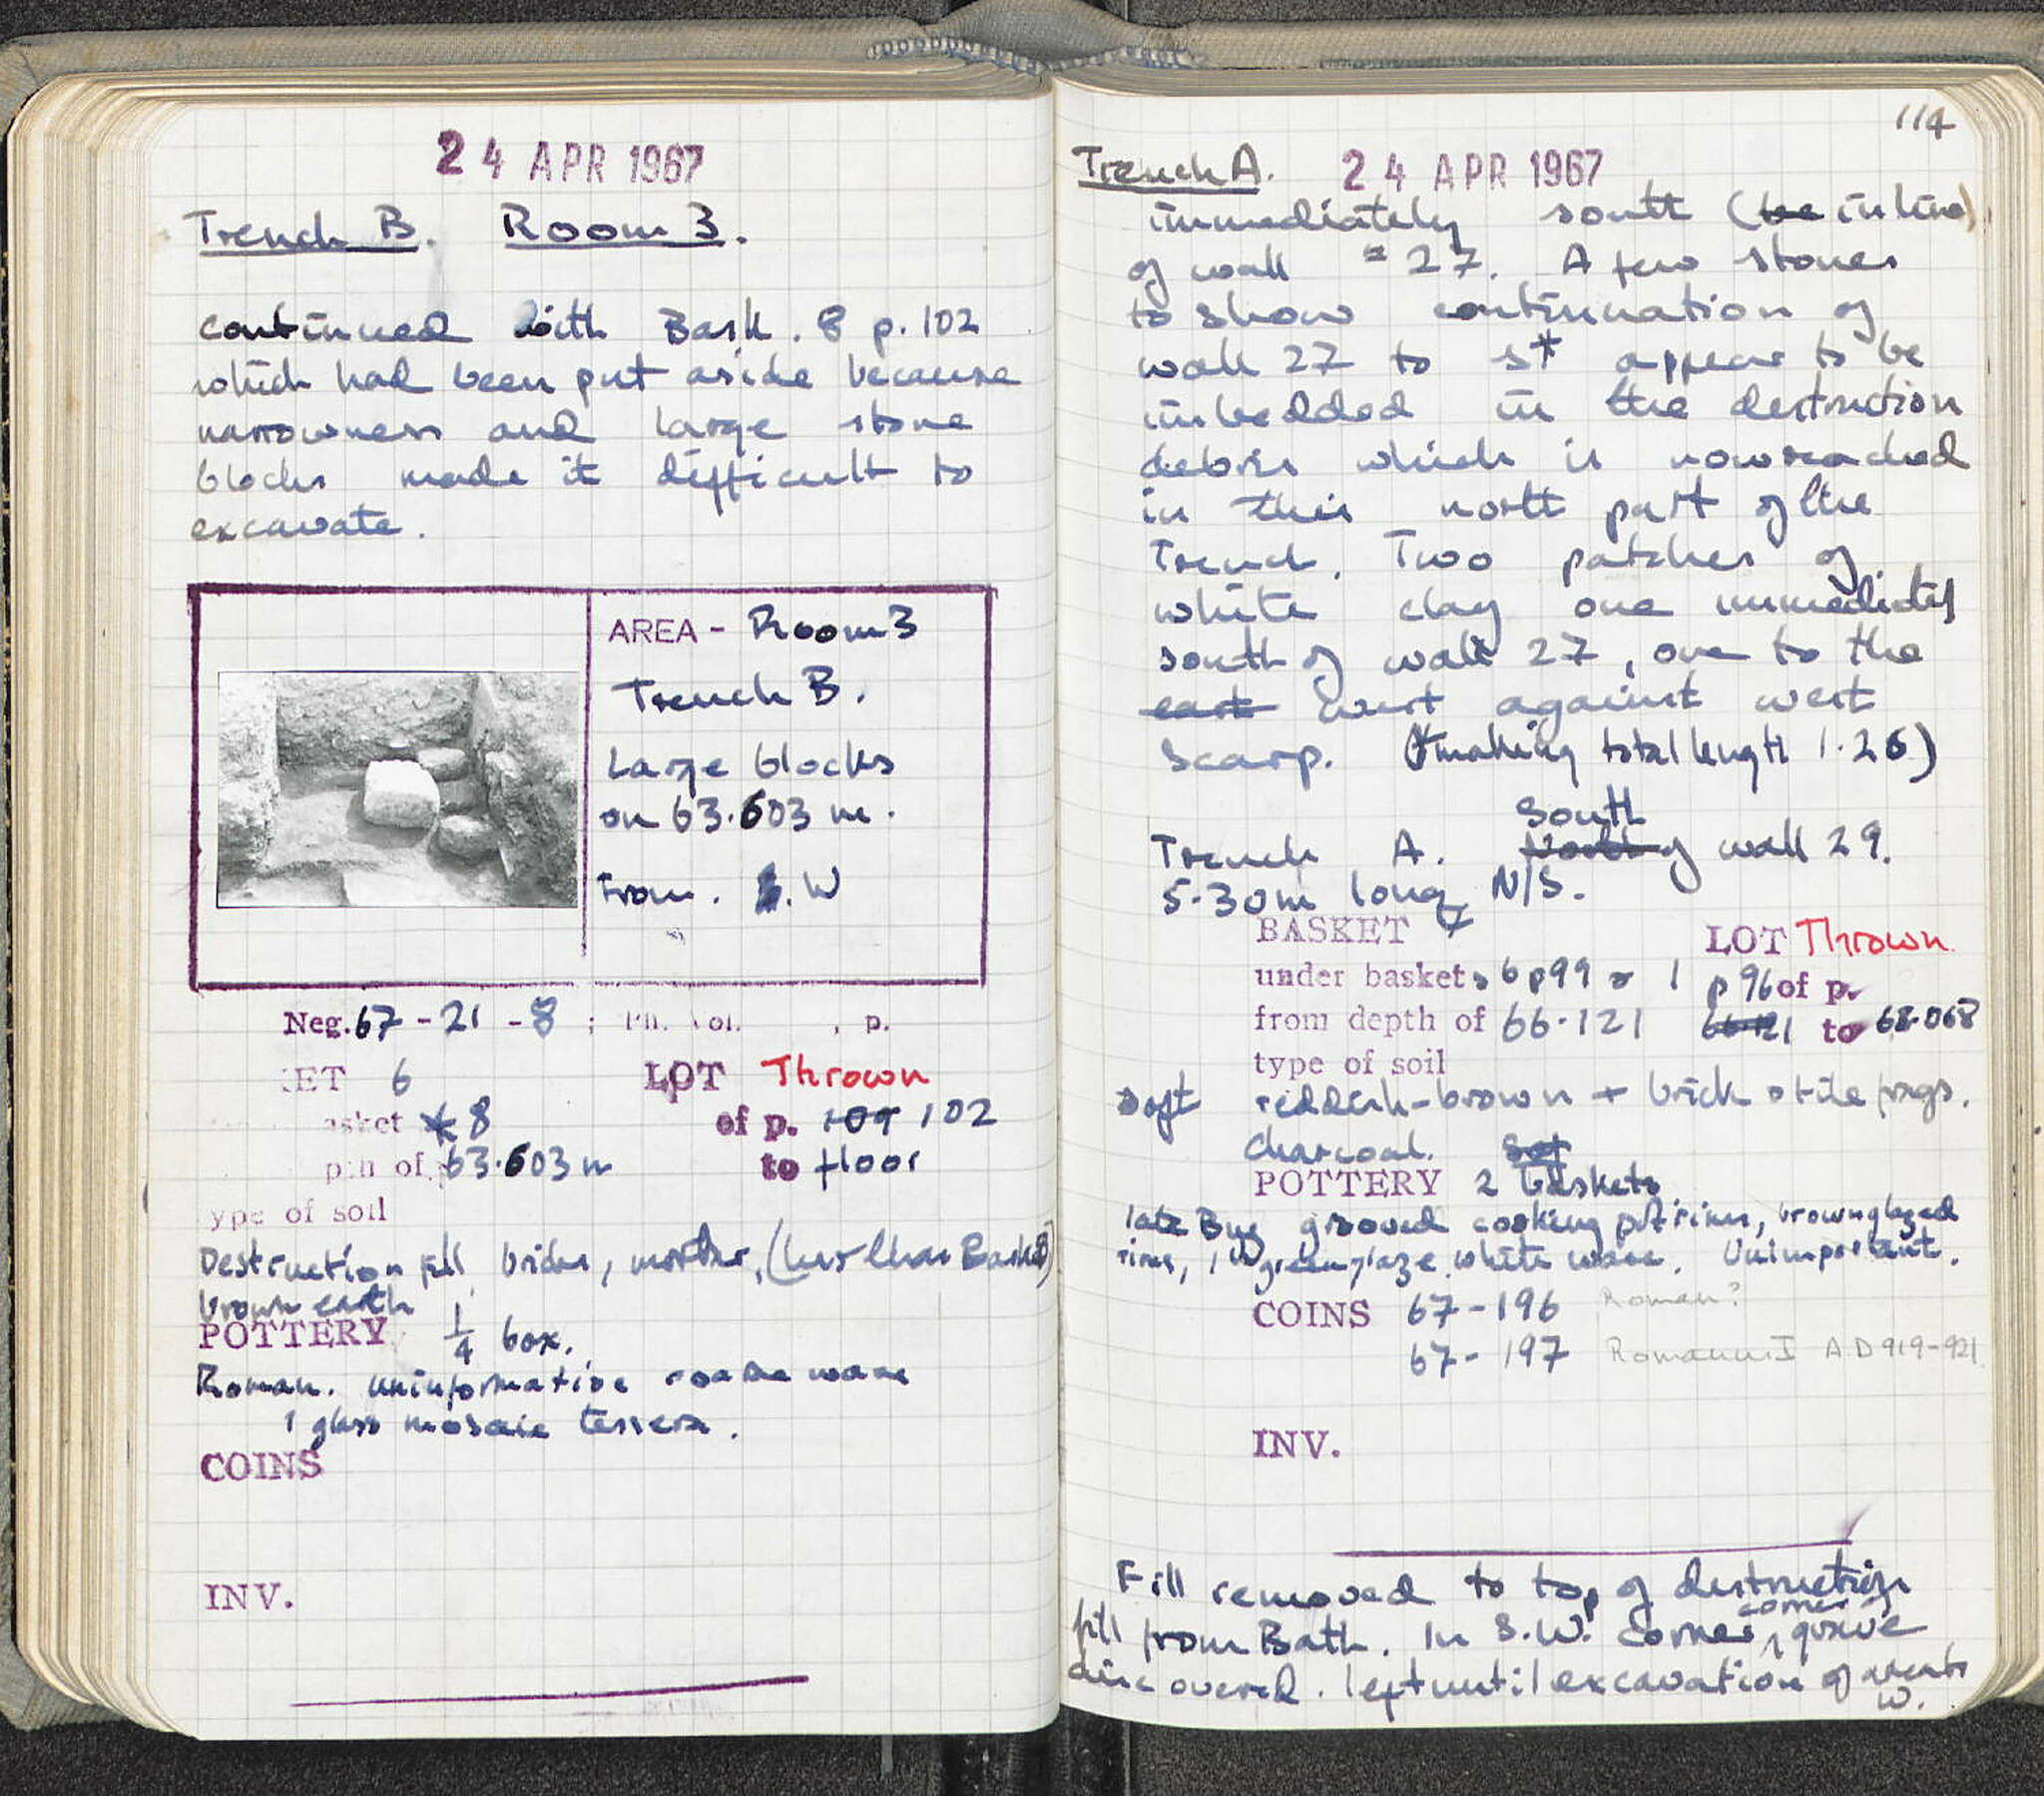 24 APR 1967
Trench B. Room 3.
continued with Bask. 8 p. 102
which had been put aside because
narrowness and large stone
blocks made it difficult to
excavate.
AREA - Room 3
Trench B.
Large blocks
on 63.603 m.
From. W
Neg. 67 - 21 - 8 ; Ph. Vol. , p.
KET 6 LOT Thrown
asket 8 of p. 109 102
pth of 63.603 m to floor
ype of soil
Destruction fill, bricks, mortar, (less than Basket 8)
brown earth
POTTERY 1/4 box.
Roman. uninformative coarse ware
1 glass mosaic tessera.
COINS
INV.
114
Trench A. 24 APR 1967
immediately south (be in line)
of wall # 27. A few stones
to show continuation of
wall 27 to S* appear to be
imbedded in the destruction
debris which is now reached
in this north part of the
Trench. Two patches of
white clay one immediately
south of wall 27, one to the
east west against west
scarp. (*making total length 1.26)
South
Trench A. North of wall 29.
5.30m long N/S.
BASKET 7 LOT Thrown
under baskets 6 p99 & 1 p 96 of p.
from depth of 66.121 66.121 to 68.068
type of soil
soft reddish-brown + brick & tile frags.
charcoal. Sof
POTTERY 2 baskets
late Byz grooved cooking pot rims, brown glazed
rims, 1 green glaze white ware. Unimportant.
COINS 67-196 Roman?
67-197 Romanus I A.D 919-921
INV.
Fill removed to top of destruction
fill from Bath. In S.W. corner, corner of
discovered. left until excavation of area to
W.